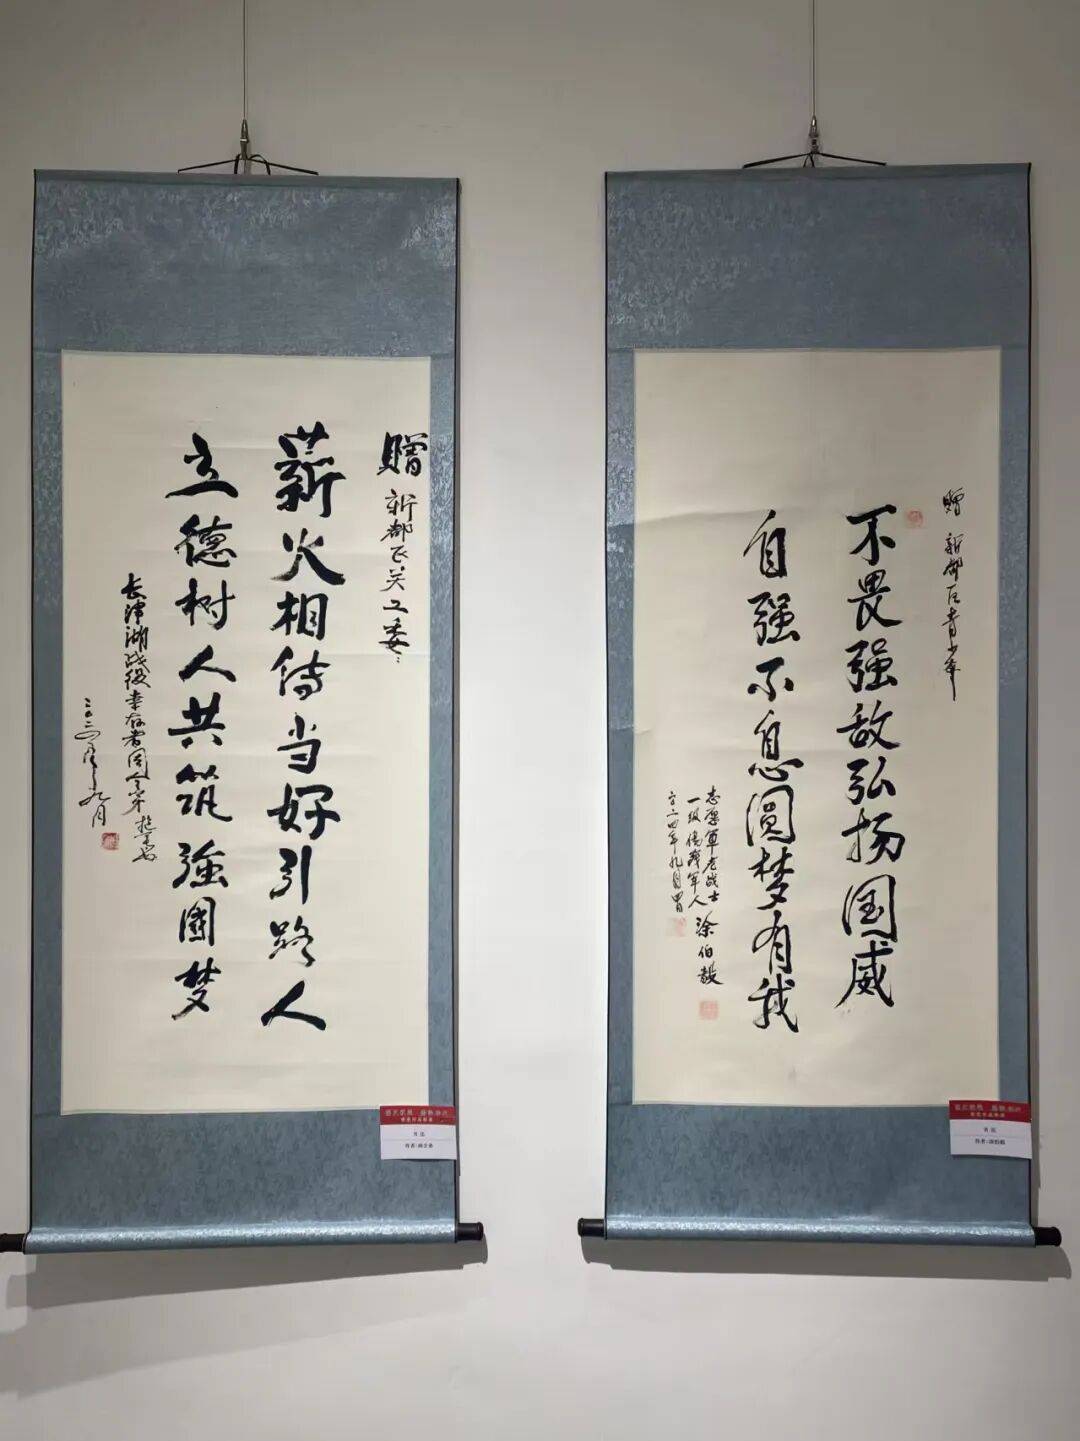 赠 新都区关工委：
薪火相传当好引路人
立德树人共筑强国梦
长津湖战役幸存者周全弟
二〇二四年九月
赠 新都区青少年
不畏强敌弘扬国威
自强不息圆梦有我
志愿军老战士
一级伤残军人 涂伯毅
二〇二四年九月
书法
书法